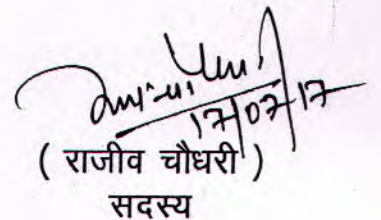 17/07/17
( राजीव चौधरी )
सदस्य